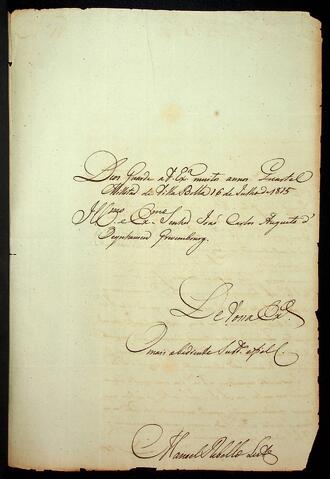 Deos Guarde a V. Exª muitos annos Quartel
Militar de Villa Bella 16 de Julho de 1815
Illmo e Exmo Senhor João Carlos Augusto d'
Oeynhausen Grevembourg.
De Vossa Exª.
O mais obediente Subdº
Manoel Rebello